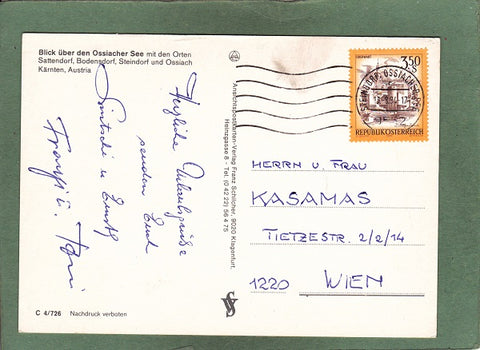 Blick über den Ossiacher See mit den Orten
Sattendorf, Bodensdorf, Steindorf und Ossiach
Kärnten, Austria
Herzliche Urlaubsgrüße
senden Euch
Ansichtspostkarten-Verlag Franz Schilcher, 9020 Klagenfurt,
Heinzgasse 8 - Tel. (0 42 22) 56 4 75
3.50
S
REPUBLIK ÖSTERREICH
STEINDORF, OSSIACHERSEE
HERRN U. FRAU
KASAMAS
TIETZESTR. 2/2/14
1220 WIEN
C 4/726 Nachdruck verboten